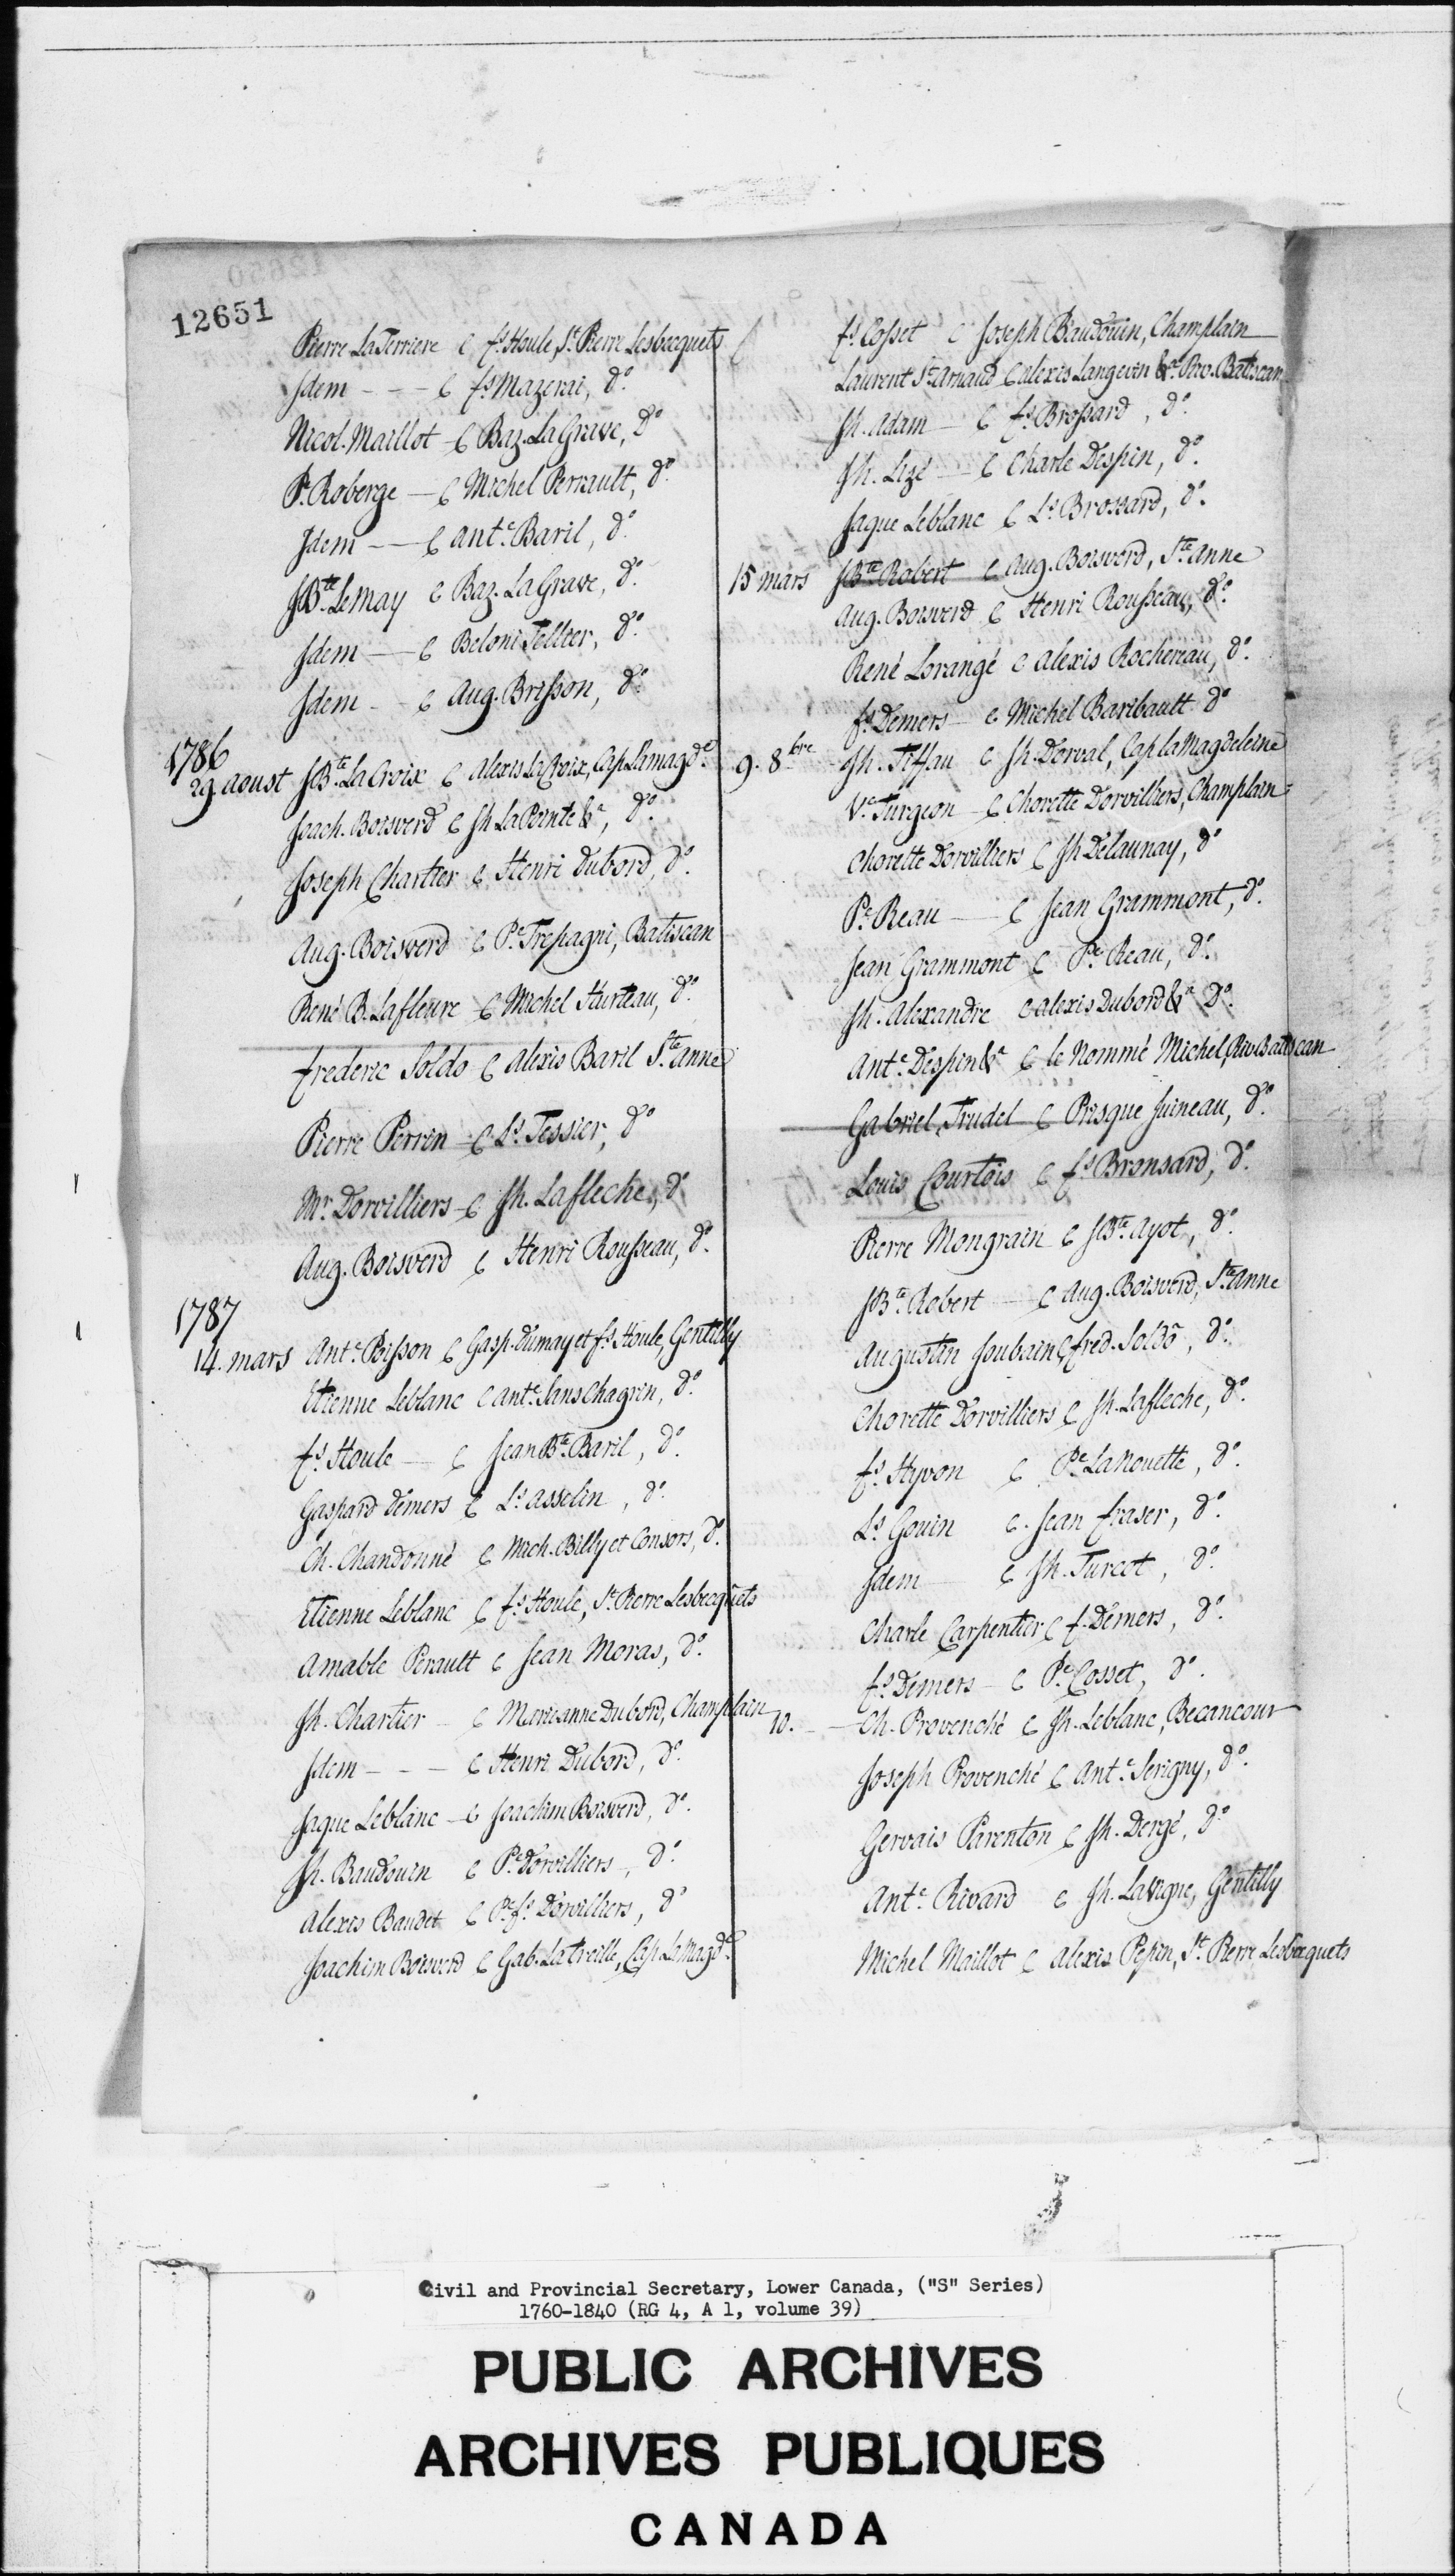 12651
Pierre LaTerriere C fs. Houle, St. Pierre Lesbecquets
Idem - - - C fs. Mazerai, do.
Nicol. Maillot - C Baz. LaGrave, do
Pe. Roberge - C Michel Perrault, do.
Idem - - C Ante. Baril, do.
JBte. Lemay C Baz. LaGrave, do.
Idem - C Beloni Tellier, do.
Idem - C Aug. Brisson, do.
1786
29 aoust JBte. LaCroix C Alexis LaCroix, Cap Lamagde.
Joach. Boisverd C Jh LaPointe &a, do.
Joseph Chartier C Henri Dubord, do.
Aug. Boisverd C Pe. Trepagni, Batiscan
René B. Lafleure C Michel Hurteau, do.
Frederic Soldo C Alexis Baril Ste. Anne
Pierre Perrin - C Ls. Tessier, do
Mr. Dorvilliers - C Jh. Lafleche, do
Aug. Boisverd C Henri Rousseau, do.
1787
14. mars Ante. Poisson C Gasp. Dumay et fs. Houle, Gentilly
Etienne Leblanc C Ante. Sans Chagrin, do.
fs. Houle - C Jean Bte. Baril, do.
Gaspard Demers C Ls. Asselin, do.
Ch. Chandonné C Mich. Billy et Consors, do.
Etienne Leblanc C fs. Houle, St. Pierre Lesbecquets
Amable Perault C Jean Moras, do.
Jh. Chartier - C Merieanne Dubord, Champlain
Idem - - - C Henri Dubord, do.
Jaque Leblanc - C Joachim Boisverd, do.
Jh. Baudouin C Pe. Dorvilliers, do.
Alexis Baudet C Pe. fs. Dorvilliers, do
Joachim Boisverd C Gab. LaTreille, Cap LaMagde.
fs. Cosset C Joseph Baudouin, Champlain
Laurent St. Arnaud C Alexis Langevin &a. Riv. Batiscan
Jh. Adam - C fs. Brossard, do.
Jh. Lizé - C Charle Despin, do.
Jaque Leblanc C Ls. Brossard, do.
15 mars JBte Robert C Aug. Boisverd, Ste. Anne
Aug. Boisverd C Henri Rousseau, do.
René Lorangé C Alexis Rochereau, do.
fs. Demers - C Michel Baribault do
9. 8bre - Jh. Tiffau C Jh. Dorval, Cap laMagdeleine
Ve. Turgeon - C Chorette Dorvilliers, Champlain
Chorette Dorvilliers C Jh Delaunay, do
Pe. Reau - C Jean Grammont, do.
Jean Grammont C Pe. Reau, do.
Jh. Alexandre C Alexis Dubord &a do.
Ante. Despin &a C le Nommé Michel, Riv. Batiscan
Gabriel Trudel C Prisque Juineau, do.
Louis Courtois C fs. Bronsard, do.
Pierre Mongrain C JBte. Ayot, do.
JBte. Robert - C Aug. Boisverd, Ste Anne
Augustin Joubain C fred. Soldo, do.
Chorette Dorvilliers C Jh. Lafleche, do.
fs. Hyvon C Pe. LaNouette, do.
Ls. Gouin C. Jean Fraser, do.
Idem - C Jh. Turcot, do.
Charle Carpentier C f. Demers, do.
fs. Demers - C Pe. Cosset, do.
10. - - Ch. Provenché C Jh. Leblanc, Becancour
Joseph Provenché C Ante. Serigny, do.
Gervais Parenton C Jh. Dergé, do
Ante. Rivard C Jh. LaVigne, Gentilly
Michel Maillot C Alexis Pepin, St. Pierre Lesbecquets
Civil and Provincial Secretary, Lower Canada, ("S" Series)
1760-1840 (RG 4, A 1, volume 39)
PUBLIC ARCHIVES
ARCHIVES PUBLIQUES
CANADA